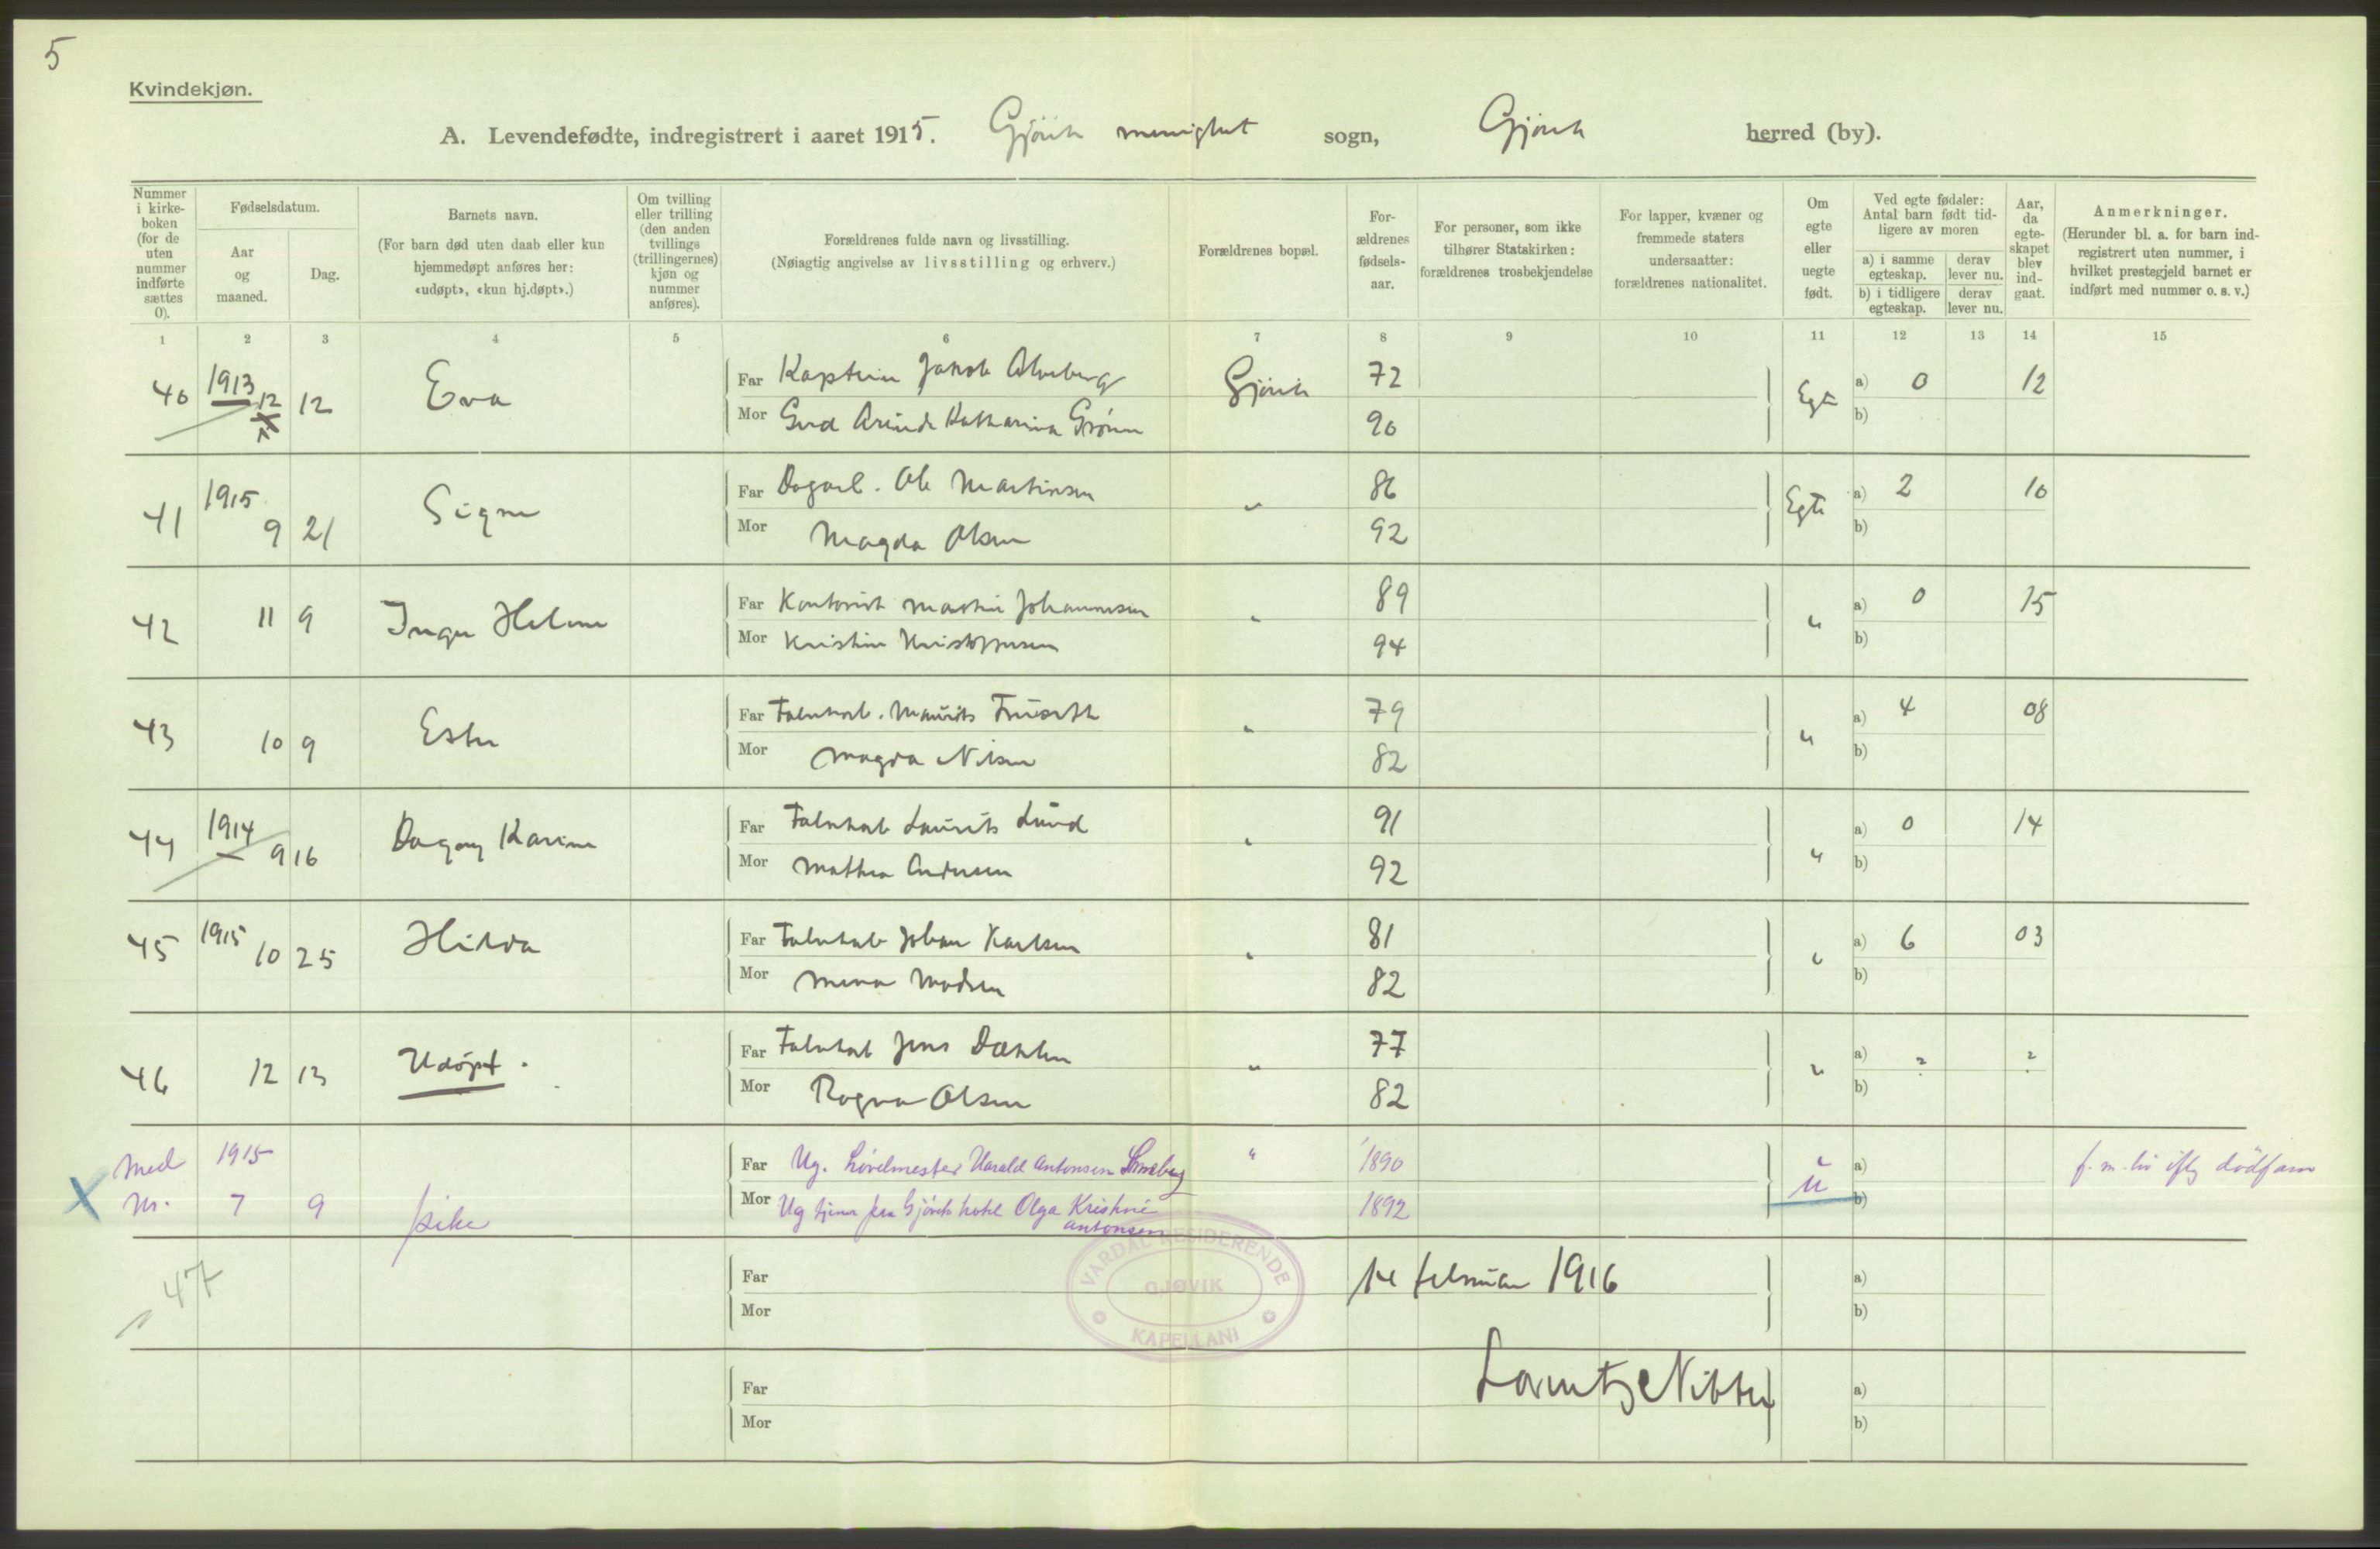 5
Kvindekjøn.
A. Levendefødte, indregistrert i aaret 1915. Gjövik menighet sogn, Gjövik herred (by).
Nummer i kirkeboken (for de uten nummer indførte sættes 0).
Fødselsdatum.
Aar og maaned.
Dag.
Barnets navn.
(For barn død uten daab eller kun hjemmedøpt anføres her: «udøpt», «kun hj.døpt».)
Om tvilling eller trilling (den anden tvillings (trillingernes) kjøn og nummer anføres).
Forældrenes fulde navn og livsstilling.
(Nøiagtig angivelse av livsstilling og erhverv.)
Forældrenes bopæl.
Forældrenes fødselsaar.
For personer, som ikke tilhører Statskirken: forældrenes trosbekjendelse
For lapper, kvæner og fremmede staters undersaatter: forældrenes nationalitet.
Om egte eller uegte født.
Ved egte fødsler: Antal barn født tidligere av moren
a) i samme egteskap.
derav lever nu.
b) i tidligere egteskap.
derav lever nu.
Aar, da egteskapet blev indgaat.
Anmerkninger.
(Herunder bl. a. for barn indregistrert uten nummer, i hvilket prestegjeld barnet er indført med nummer o. s. v.)
1 2 3 4 5 6 7 8 9 10 11 12 13 14 15
40 1913 12 12 Eva Far Kaptein Jakob Gjövik 72 Egte a) 0 12
Mor Katharina Grönn 90 b)
41 1915 9 21 Signe Far Dagarb. Ole Martinsen " 86 Egte a) 2 10
Mor Magda Olsen 92 b)
42 11 9 Inger Helene Far Kontorist Martin Johannesen " 89 " a) 0 15
Mor Kristine Kristoffersen 94 b)
43 10 9 Ester Far Fabrikarb. Maurits " 79 " a) 4 08
Mor Magda Nilsen 82 b)
44 1914 9 16 Dagny Karine Far Fabrikarb Laurits Lund " 91 " a) 0 14
Mor Mathea Andersen 92 b)
45 1915 10 25 Hilda Far Fabrikarb Johan Karlsen " 81 " a) 6 03
Mor Mina Madsen 82 b)
46 12 13 Udöpt. Far Fabrikarb Jens Dæhlen " 77 " a) ? ?
Mor Ragna Olsen 82 b)
Med 1915 Far Ug. Harald Antonsen " 1890 u a) f. m. liv iflg dödfam
X Nr. 7 9 pike Mor Ug tjener fra Gjövik hotel Olga Kristine Antonsen 1892 b)
47 Far 14 februar 1916 a)
Mor b)
VARDAL RESIDERENDE
GJØVIK
KAPELLANI
Far Lorentz a)
Mor b)